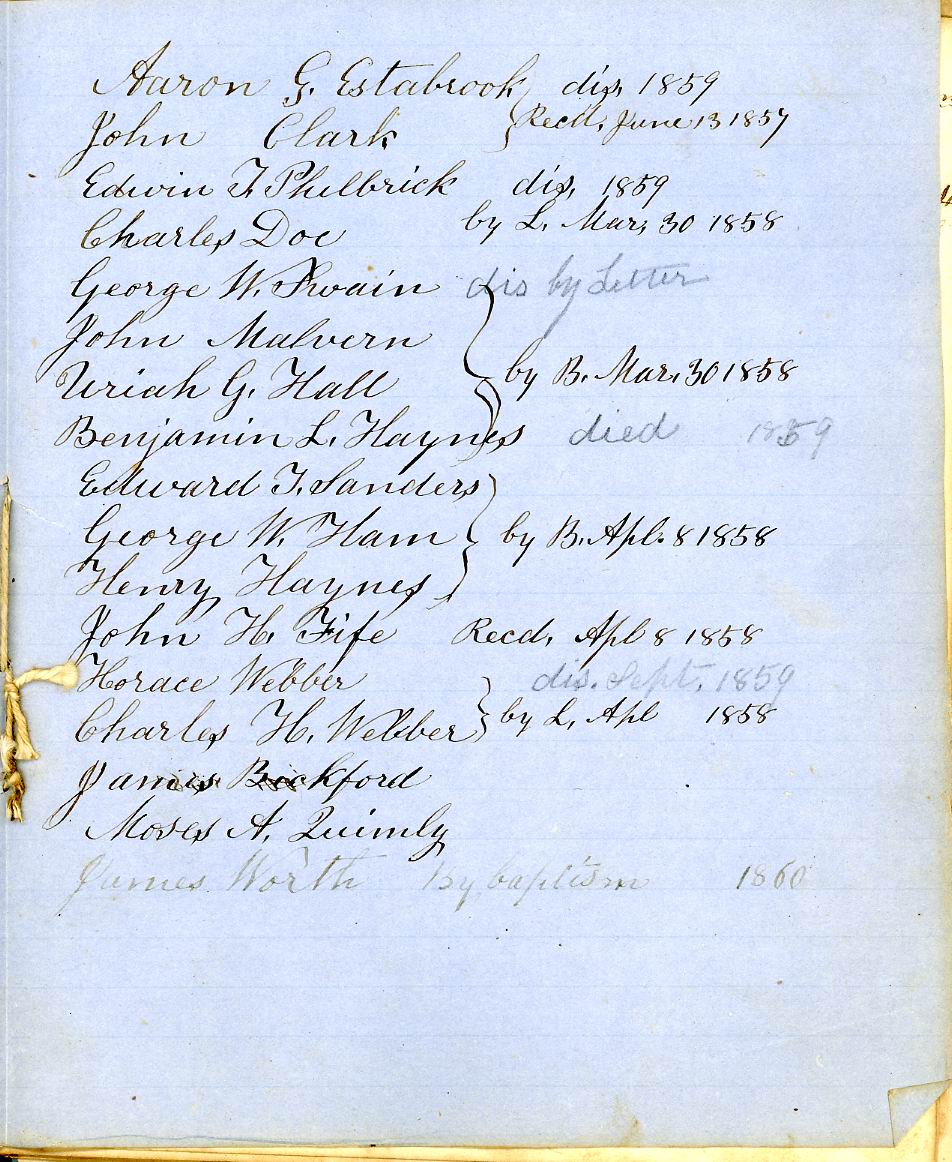 Aaron G. Estabrook dis, 1859
John Clark Recd, June 13 1857
Edwin T. Philbrick dis, 1859
Charles Doe by L. Mar, 30 1858
George W. Swain dis by Letter
John Malvern
Uriah G. Hall by B. Mar. 30 1858
Benjamin L. Haynes died 1859
Edward T. Sanders
George W. Ham by B. Apl. 8 1858
Henry Haynes
John H. Fife Recd, Apl 8 1858
Horace Webber dis. Sept. 1859
Charles H. Webber by L, Apl 1858
James Bickford
Moses A. Quimby
James Worth By baptism 1860